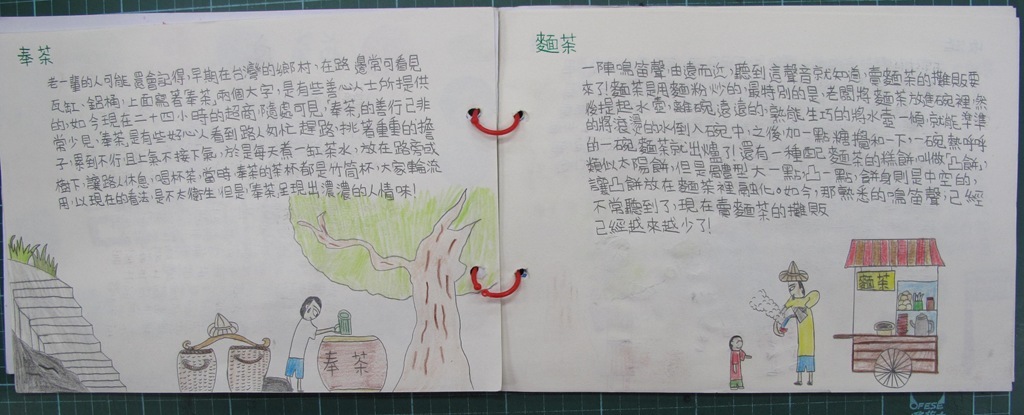 奉茶
老一輩的人可能還會記得,早期在台灣的鄉村,在路邊常可看見
瓦缸、鋁桶,上面寫著「奉茶」兩個大字,是有些善心人士所提供
的,如今現在二十四小時的超商,隨處可見,「奉茶」的善行已非
常少見,「奉茶」是有些好心人看到路人匆忙趕路,挑著重重的擔
子,累到不行,且上氣不接下氣,於是每天煮一缸茶水,放在路旁或
樹下,讓路人休息、喝杯茶,當時奉茶的茶杯都是竹筒杯,大家輪流
用,以現在的看法,是不太衛生,但是「奉茶」呈現出濃濃的人情味!
奉茶
麵茶
一陣鳴笛聲,由遠而近,聽到這聲音就知道,賣麵茶的攤販要
來了!麵茶是用麵粉炒的,最特別的是,老闆將麵茶放進碗裡,然
後提起水壺,離碗遠遠的,熟能生巧的將水壺一傾,就能準準
的將滾燙的水倒入碗中,之後,加一點糖攪和一下,一碗熱呼呼
的一碗麵茶就出爐了!還有一種配麵茶的糕餅,叫做「凸餅」,
類似太陽餅,但是體型大一點,凸一點,餅身則是中空的,
讓凸餅放在麵茶裡融化。如今,那熟悉的鳴笛聲,已經
不常聽到了,現在賣麵茶的攤販
已經越來越少了!
麵茶